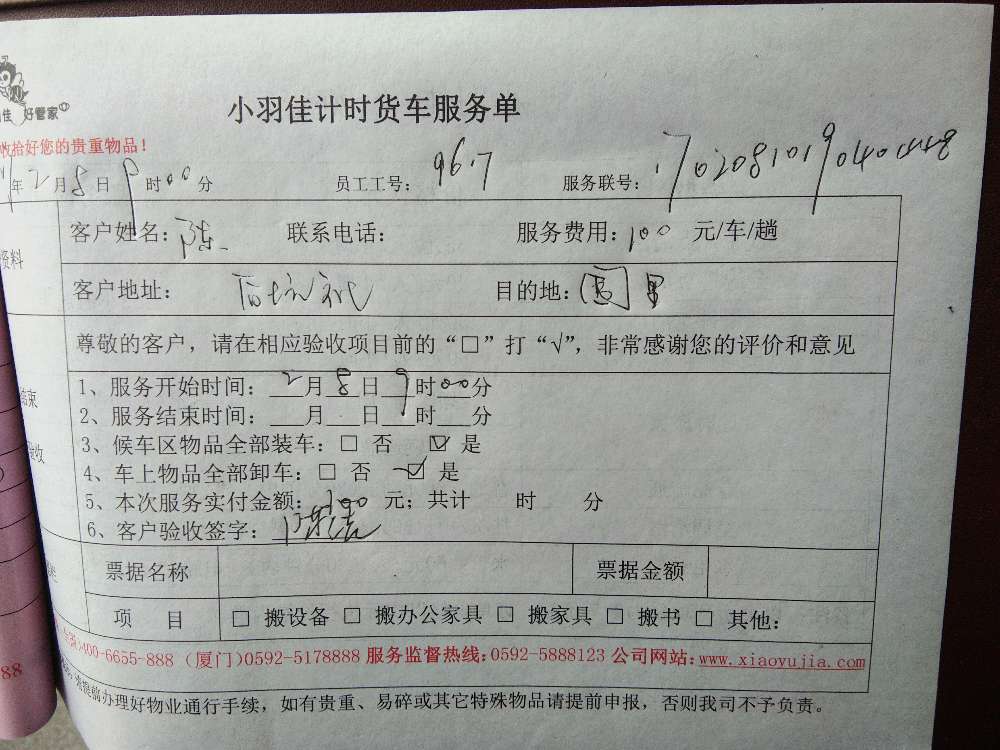 佳 好管家
小羽佳计时货车服务单
收拾好您的贵重物品！
年2月8日9时00分 员工工号：967 服务联号：1702081019040448
客户姓名：陈 联系电话： 服务费用：100 元/车/趟
资料
客户地址： 目的地：
尊敬的客户，请在相应验收项目前的“□”打“√”，非常感谢您的评价和意见
1、服务开始时间：2月8日9时00分
2、服务结束时间：___月___日___时___分
3、候车区物品全部装车：□ 否 ☑ 是
4、车上物品全部卸车：□ 否 ☑ 是
5、本次服务实付金额：100 元；共计 时 分
6、客户验收签字：
票据名称 票据金额
项 目 □ 搬设备 □ 搬办公家具 □ 搬家具 □ 搬书 □ 其他：
400-6655-888（厦门）0592-5178888 服务监督热线：0592-5888123 公司网站：www.xiaoyujia.com
提前办理好物业通行手续，如有贵重、易碎或其它特殊物品请提前申报，否则我司不予负责。
88